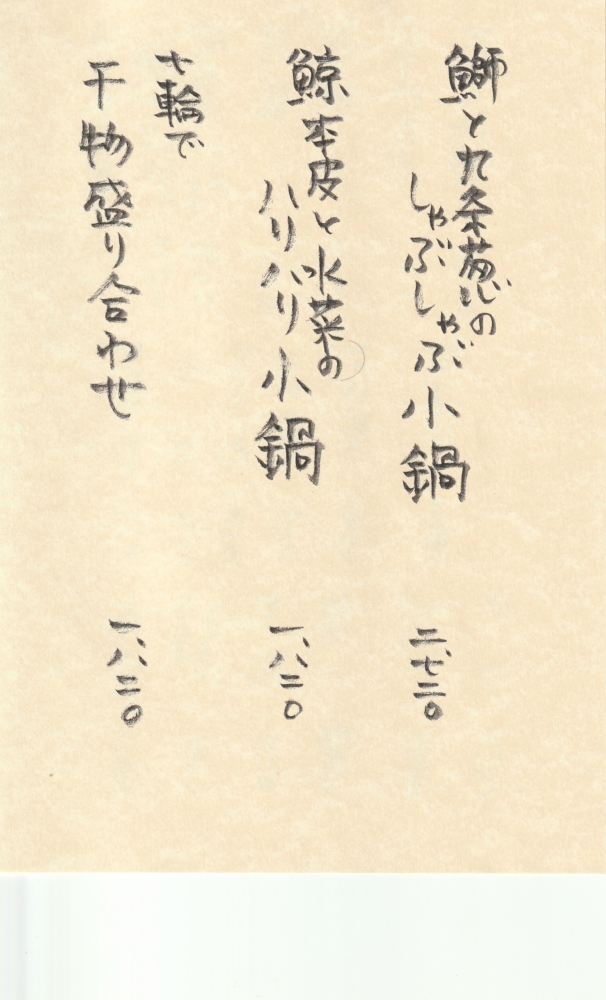 鰤と九条葱の
しゃぶしゃぶ小鍋
二、七二〇
鯨本皮と水菜の
ハリハリ小鍋
一、八二〇
七輪で
干物盛り合わせ
一、八二〇